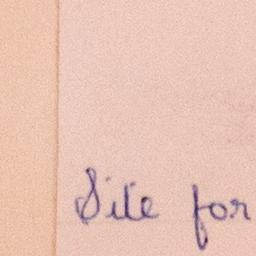 Site for